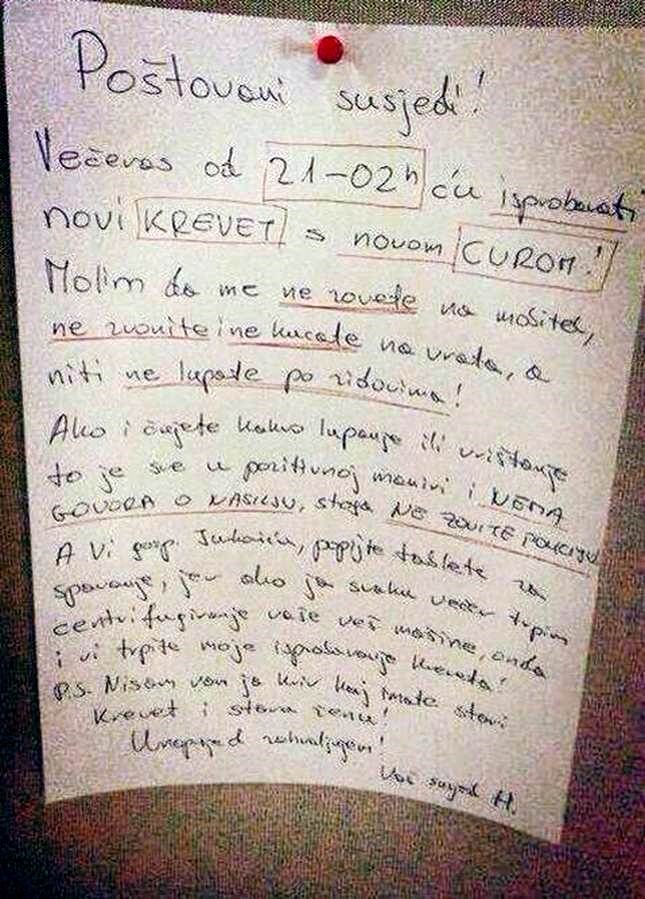 Poštovani susjedi!
Večeras od 21-02h ću isprobavati
novi KREVET s novom CUROM!
Molim da me ne zovete na mobitel,
ne zvonite i ne kucate na vrata, a
niti ne lupate po zidovima!
Ako i čujete kakvo lupanje ili vrištanje
to je sve u pozitivnoj maniri i NEMA
GOVORA O NASILJU, stoga NE ZOVITE POLICIJU
A Vi gosp. popijte tablete za
spavanje, jer ako ja svaku večer trpim
centrifugiranje vaše veš mašine, onda
i vi trpite moje isprobavanje kreveta!
P.S. Nisam vam ja kriv kaj imate stari
krevet i staru ženu!
Unaprijed zahvaljujem!
Vaš susjed H.